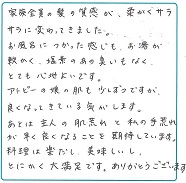 家族全員の髪の質感が、柔かくサラ
サラに変わってきました。
お風呂につかった感じも、お湯が
軟かく、塩素のあの臭いもなく、
とても心地よいです。
アトピーの娘の肌も少しずつですが、
良くなってきている気がします。
あとは主人の肌荒れと私の手荒れ
が早く良くなることを期待しています。
料理は楽だし、美味しいし、
とにかく大満足です。ありがとうございます